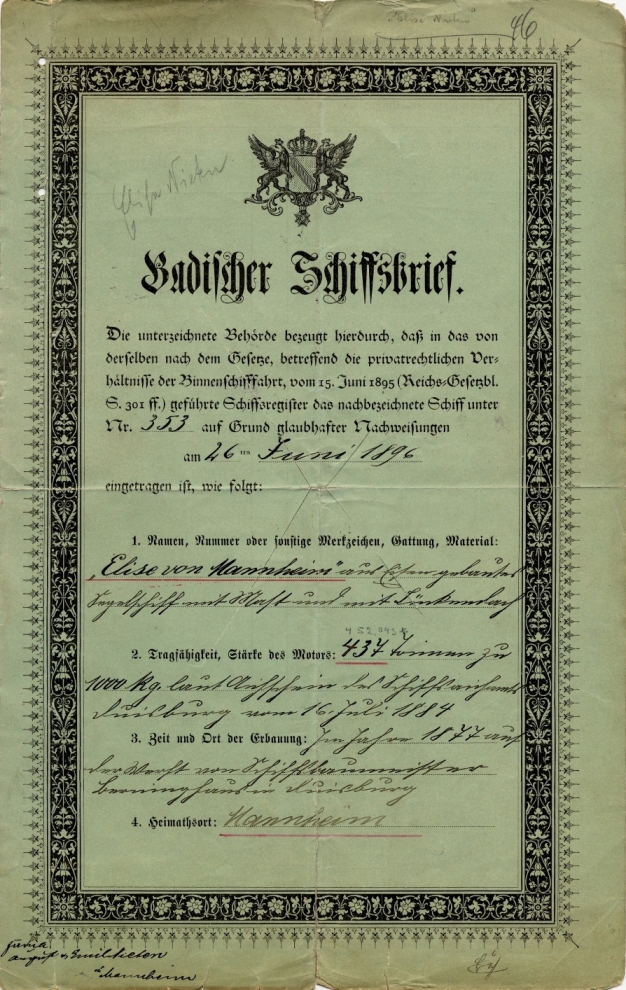 46
Badischer Schiffsbrief.
Die unterzeichnete Behörde bezeugt hierdurch, daß in das von
derselben nach dem Gesetze, betreffend die privatrechtlichen Ver-
hältnisse der Binnenschifffahrt, vom 15. Juni 1895 (Reichs-Gesetzbl.
S. 301 ff.) geführte Schiffsregister das nachbezeichnete Schiff unter
Nr. 353 auf Grund glaubhafter Nachweisungen
am 26ten Juni 1896
eingetragen ist, wie folgt:
1. Namen, Nummer oder sonstige Merkzeichen, Gattung, Material:
„Elise von Mannheim" aus Eisen gebautes
Segelschiff mit Mast und mit
2. Tragfähigkeit, Stärke des Motors: 437 Tonnen zu
1000 kg. laut Aichschein des Schiffsaichamts
Duisburg vom 16. Juli 1884
3. Zeit und Ort der Erbauung: Im Jahre 1877 auf
der Werft von Schiffsbaumeister
Berninghaus in Duisburg
4. Heimathsort: Mannheim
Mannheim